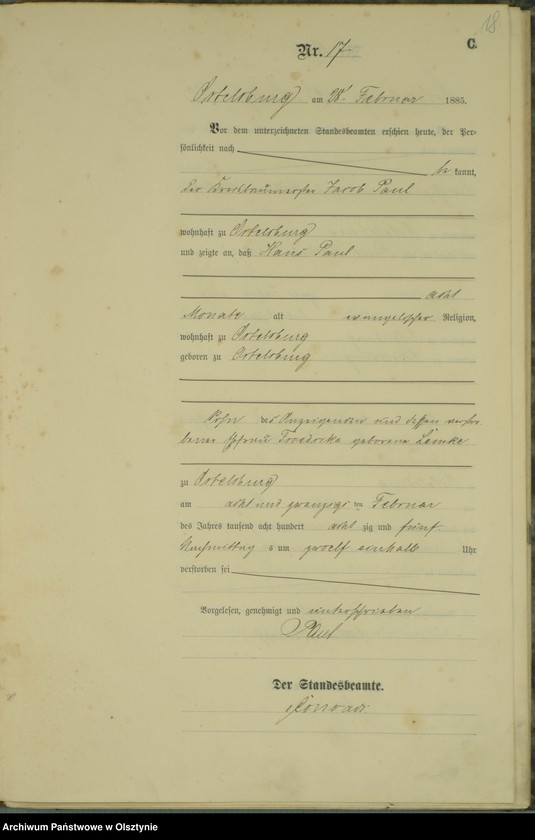 18
C.
Nr. 17
Ortelsburg am 28t Februar 1885.
Vor dem unterzeichneten Standesbeamten erschien heute, der Per-
sönlichkeit nach
be kannt,
der Jacob Paul
wohnhaft zu Ortelsburg
und zeigte an, daß Hans Paul
acht
Monate alt evangelischer Religion,
wohnhaft zu Ortelsburg
geboren zu Ortelsburg
Sohn des Anzeigenden und dessen verstor
benen Ehefrau geborene Lemke
zu Ortelsburg
am acht und zwanzigsten Februar
des Jahres tausend acht hundert acht zig und fünf
Nachmittag s um zwoelf einhalb Uhr
verstorben sei
Vorgelesen, genehmigt und unterschrieben
Paul
Der Standesbeamte.
Archiwum Państwowe w Olsztynie